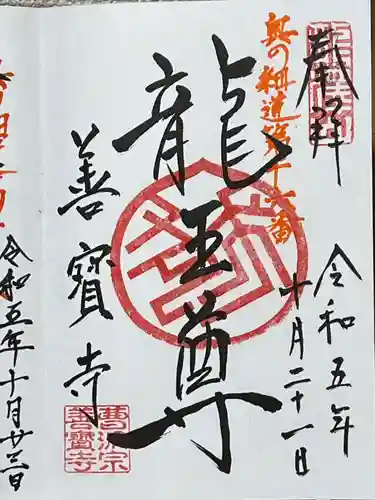 奉拝
奥の細道第十六番
龍王尊
令和五年
十月二十一日
善寳寺
曹洞宗
善寳寺
令和五年十月廿三日